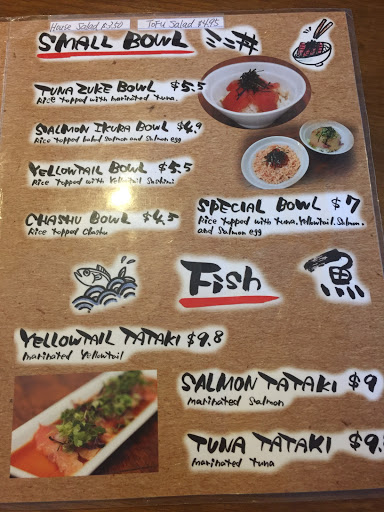 House Salad $2.50 Tofu Salad $4.95
SMALL BOWL ミニ丼
TUNA ZUKE BOWL $5.5
Rice topped with marinated tuna.
SALMON IKURA BOWL $4.9
Rice topped baked salmon and salmon egg
YELLOWTAIL BOWL $5.5
Rice topped with Yellowtail Sashimi
CHASHU BOWL $4.5
Rice topped Chashu
SPECIAL BOWL $7
Rice topped with tuna, Yellowtail, Salmon.
and Salmon egg
Fish 魚
YELLOWTAIL TATAKI $9.8
marinated Yellowtail
SALMON TATAKI $9
Marinated Salmon
TUNA TATAKI $9.
Marinated tuna